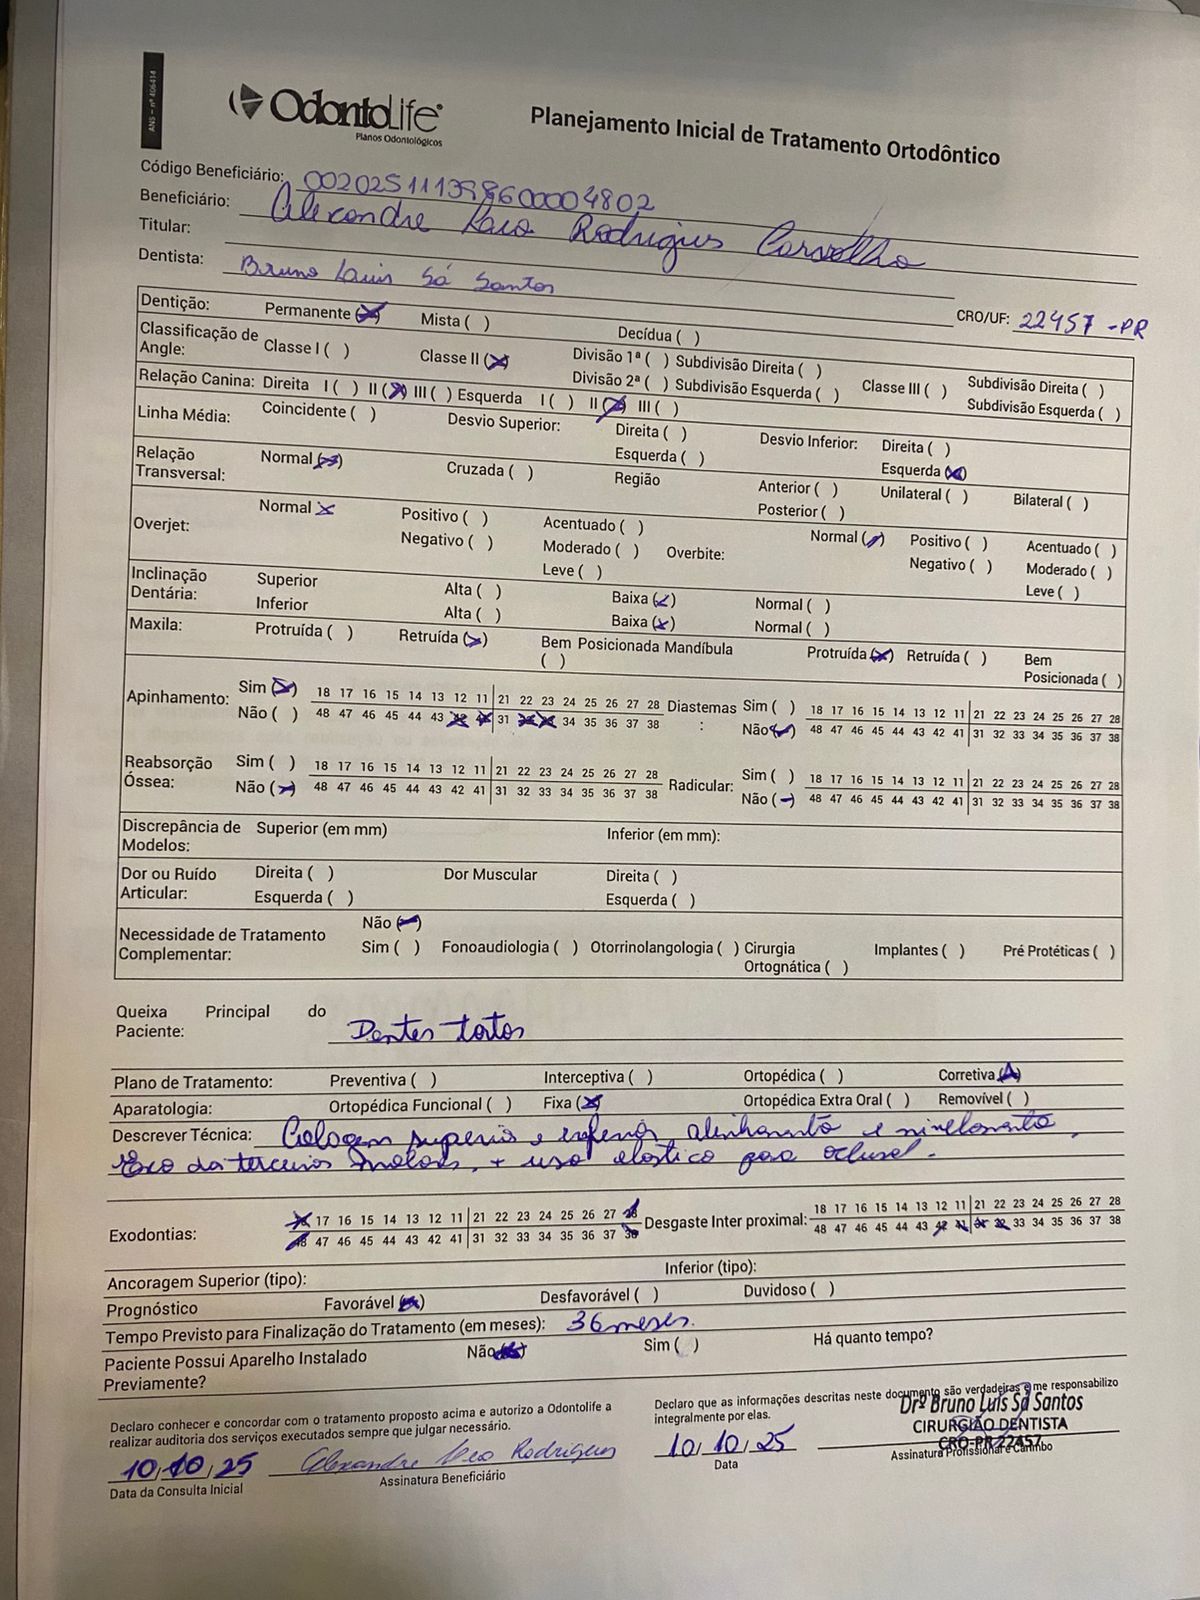 ANS - nº 406414
OdontoLife®
Planos Odontológicos
Planejamento Inicial de Tratamento Ortodôntico
Código Beneficiário:
Beneficiário: Alexandre Rodrigues Carvalho
Titular:
Dentista: Bruno Luis Sá Santos
CRO/UF: 22457 -PR
Dentição: Permanente (X) Mista ( ) Decídua ( )
Classificação de Angle: Classe I ( ) Classe II (X) Divisão 1ª ( ) Subdivisão Direita ( ) Divisão 2ª ( ) Subdivisão Esquerda ( ) Classe III ( ) Subdivisão Direita ( ) Subdivisão Esquerda ( )
Relação Canina: Direita I ( ) II (X) III ( ) Esquerda I ( ) II (X) III ( )
Linha Média: Coincidente ( ) Desvio Superior: Direita ( ) Esquerda ( ) Desvio Inferior: Direita ( ) Esquerda (X)
Relação Transversal: Normal (X) Cruzada ( ) Região Anterior ( ) Posterior ( ) Unilateral ( ) Bilateral ( )
Overjet: Normal X Positivo ( ) Negativo ( ) Acentuado ( ) Moderado ( ) Leve ( ) Overbite: Normal (X) Positivo ( ) Negativo ( ) Acentuado ( ) Moderado ( ) Leve ( )
Inclinação Dentária: Superior Alta ( ) Baixa (X) Normal ( )
Inferior Alta ( ) Baixa (X) Normal ( )
Maxila: Protruída ( ) Retruída (X) Bem Posicionada ( ) Mandíbula Protruída (X) Retruída ( ) Bem Posicionada ( )
Apinhamento: Sim (X) 18 17 16 15 14 13 12 11 21 22 23 24 25 26 27 28 Diastemas: Sim ( ) 18 17 16 15 14 13 12 11 21 22 23 24 25 26 27 28
Não ( ) 48 47 46 45 44 43 42 41 31 32 33 34 35 36 37 38 Não (X) 48 47 46 45 44 43 42 41 31 32 33 34 35 36 37 38
Reabsorção Óssea: Sim ( ) 18 17 16 15 14 13 12 11 21 22 23 24 25 26 27 28 Radicular: Sim ( ) 18 17 16 15 14 13 12 11 21 22 23 24 25 26 27 28
Não (X) 48 47 46 45 44 43 42 41 31 32 33 34 35 36 37 38 Não (-) 48 47 46 45 44 43 42 41 31 32 33 34 35 36 37 38
Discrepância de Modelos: Superior (em mm) Inferior (em mm):
Dor ou Ruído Articular: Direita ( ) Esquerda ( ) Dor Muscular Direita ( ) Esquerda ( )
Necessidade de Tratamento Complementar: Não (-)
Sim ( ) Fonoaudiologia ( ) Otorrinolangologia ( ) Cirurgia Ortognática ( ) Implantes ( ) Pré Protéticas ( )
Queixa Principal do Paciente: Dentes tortos
Plano de Tratamento: Preventiva ( ) Interceptiva ( ) Ortopédica ( ) Corretiva (X)
Aparatologia: Ortopédica Funcional ( ) Fixa (X) Ortopédica Extra Oral ( ) Removível ( )
Descrever Técnica: Colagem superior e inferior, alinhamento e nivelamento,
Exo dos terceiros molares, + uso elástico para oclusal.
Exodontias: 18 17 16 15 14 13 12 11 21 22 23 24 25 26 27 28 Desgaste Inter proximal: 18 17 16 15 14 13 12 11 21 22 23 24 25 26 27 28
48 47 46 45 44 43 42 41 31 32 33 34 35 36 37 38 48 47 46 45 44 43 42 41 31 32 33 34 35 36 37 38
Ancoragem Superior (tipo): Inferior (tipo):
Prognóstico Favorável (X) Desfavorável ( ) Duvidoso ( )
Tempo Previsto para Finalização do Tratamento (em meses): 36 meses.
Paciente Possui Aparelho Instalado Previamente? Não (X) Sim ( ) Há quanto tempo?
Declaro conhecer e concordar com o tratamento proposto acima e autorizo a Odontolife a
realizar auditoria dos serviços executados sempre que julgar necessário.
10/10/25 Alexandre Rodrigues
Data da Consulta Inicial Assinatura Beneficiário
Declaro que as informações descritas neste documento são verdadeiras e me responsabilizo
integralmente por elas.
10/10/25
Data
Drº Bruno Luís Sá Santos
CIRURGIÃO DENTISTA
CRO-PR 22457
Assinatura Profissional e Carimbo